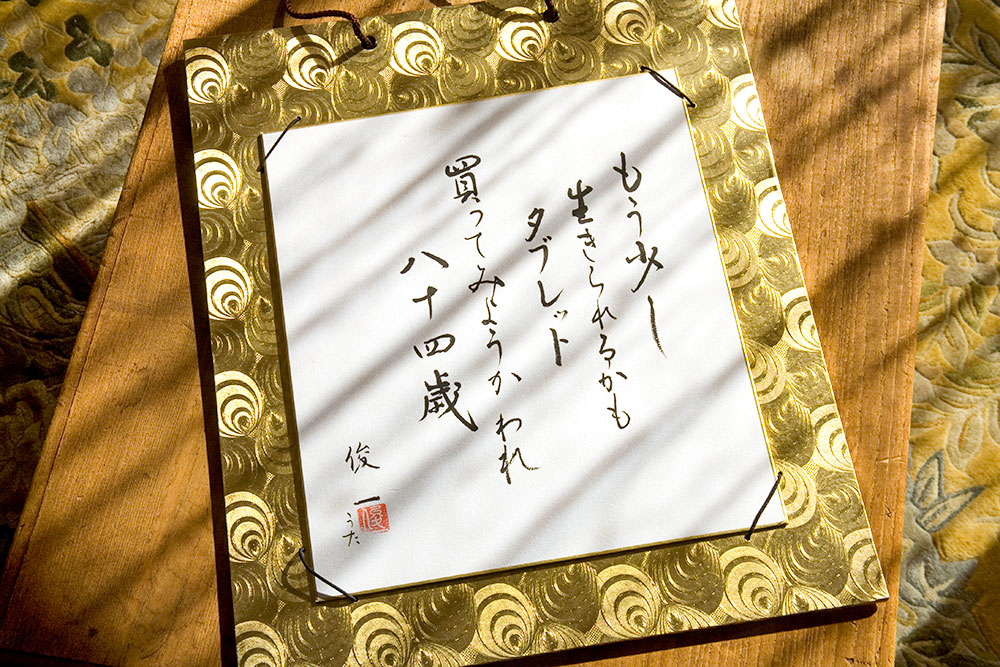 もう少し
生きられるかも
タブレット
買ってみようか われ
八十四歳
俊一
うた